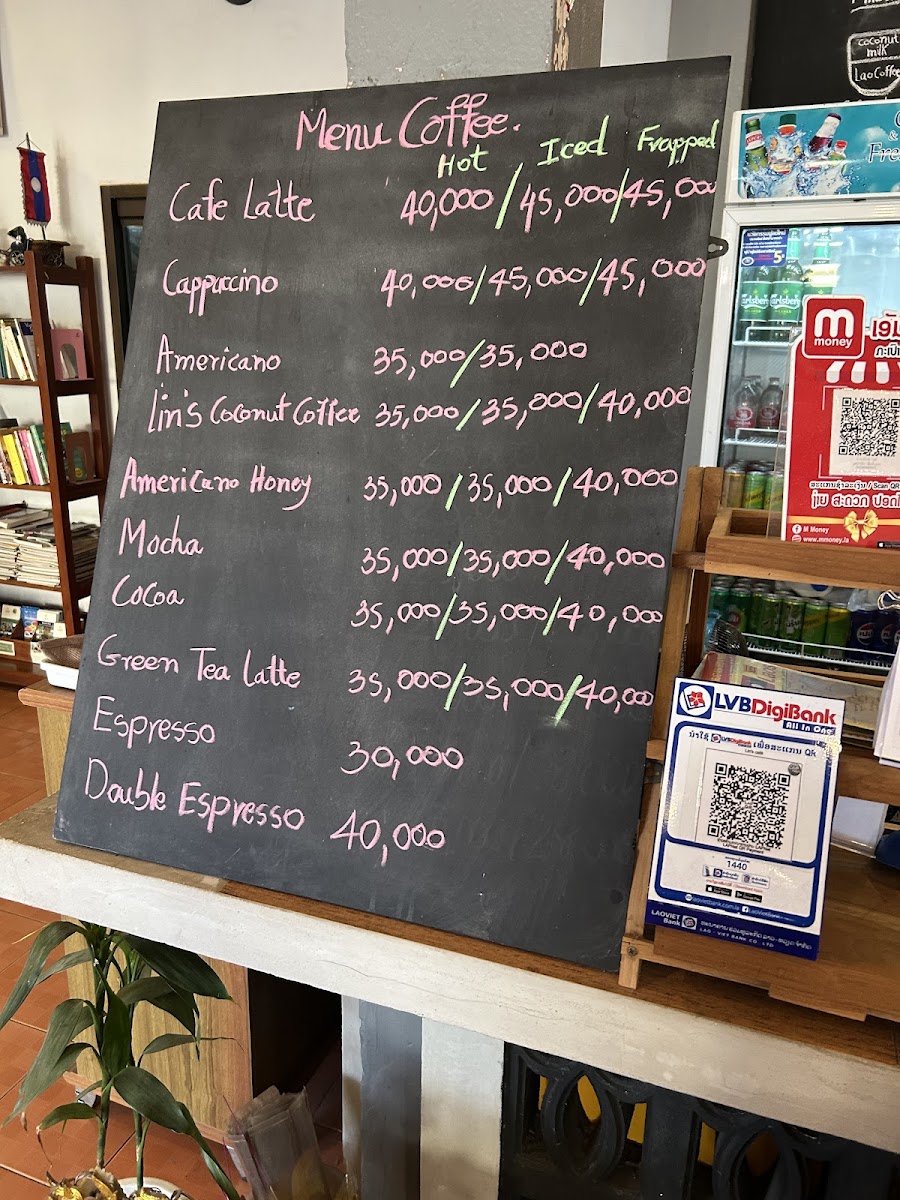 Menu Coffee.
Hot / Iced Frapped
Cafe Latte 40,000 / 45,000 / 45,000
Cappuccino 40,000 / 45,000 / 45,000
Americano 35,000 / 35,000
Lin's Coconut Coffee 35,000 / 35,000 / 40,000
Americano Honey 35,000 / 35,000 / 40,000
Mocha 35,000 / 35,000 / 40,000
Cocoa 35,000 / 35,000 / 40,000
Green Tea Latte 35,000 / 35,000 / 40,000
Espresso 30,000
Double Espresso 40,000
coconut
milk
Lao Coffee
Carlsberg
M
money
M Money
www.mmoney.la
LVBDigiBank
All In One
1440
LAOVIET
Bank
LAO - VIET BANK CO., LTD